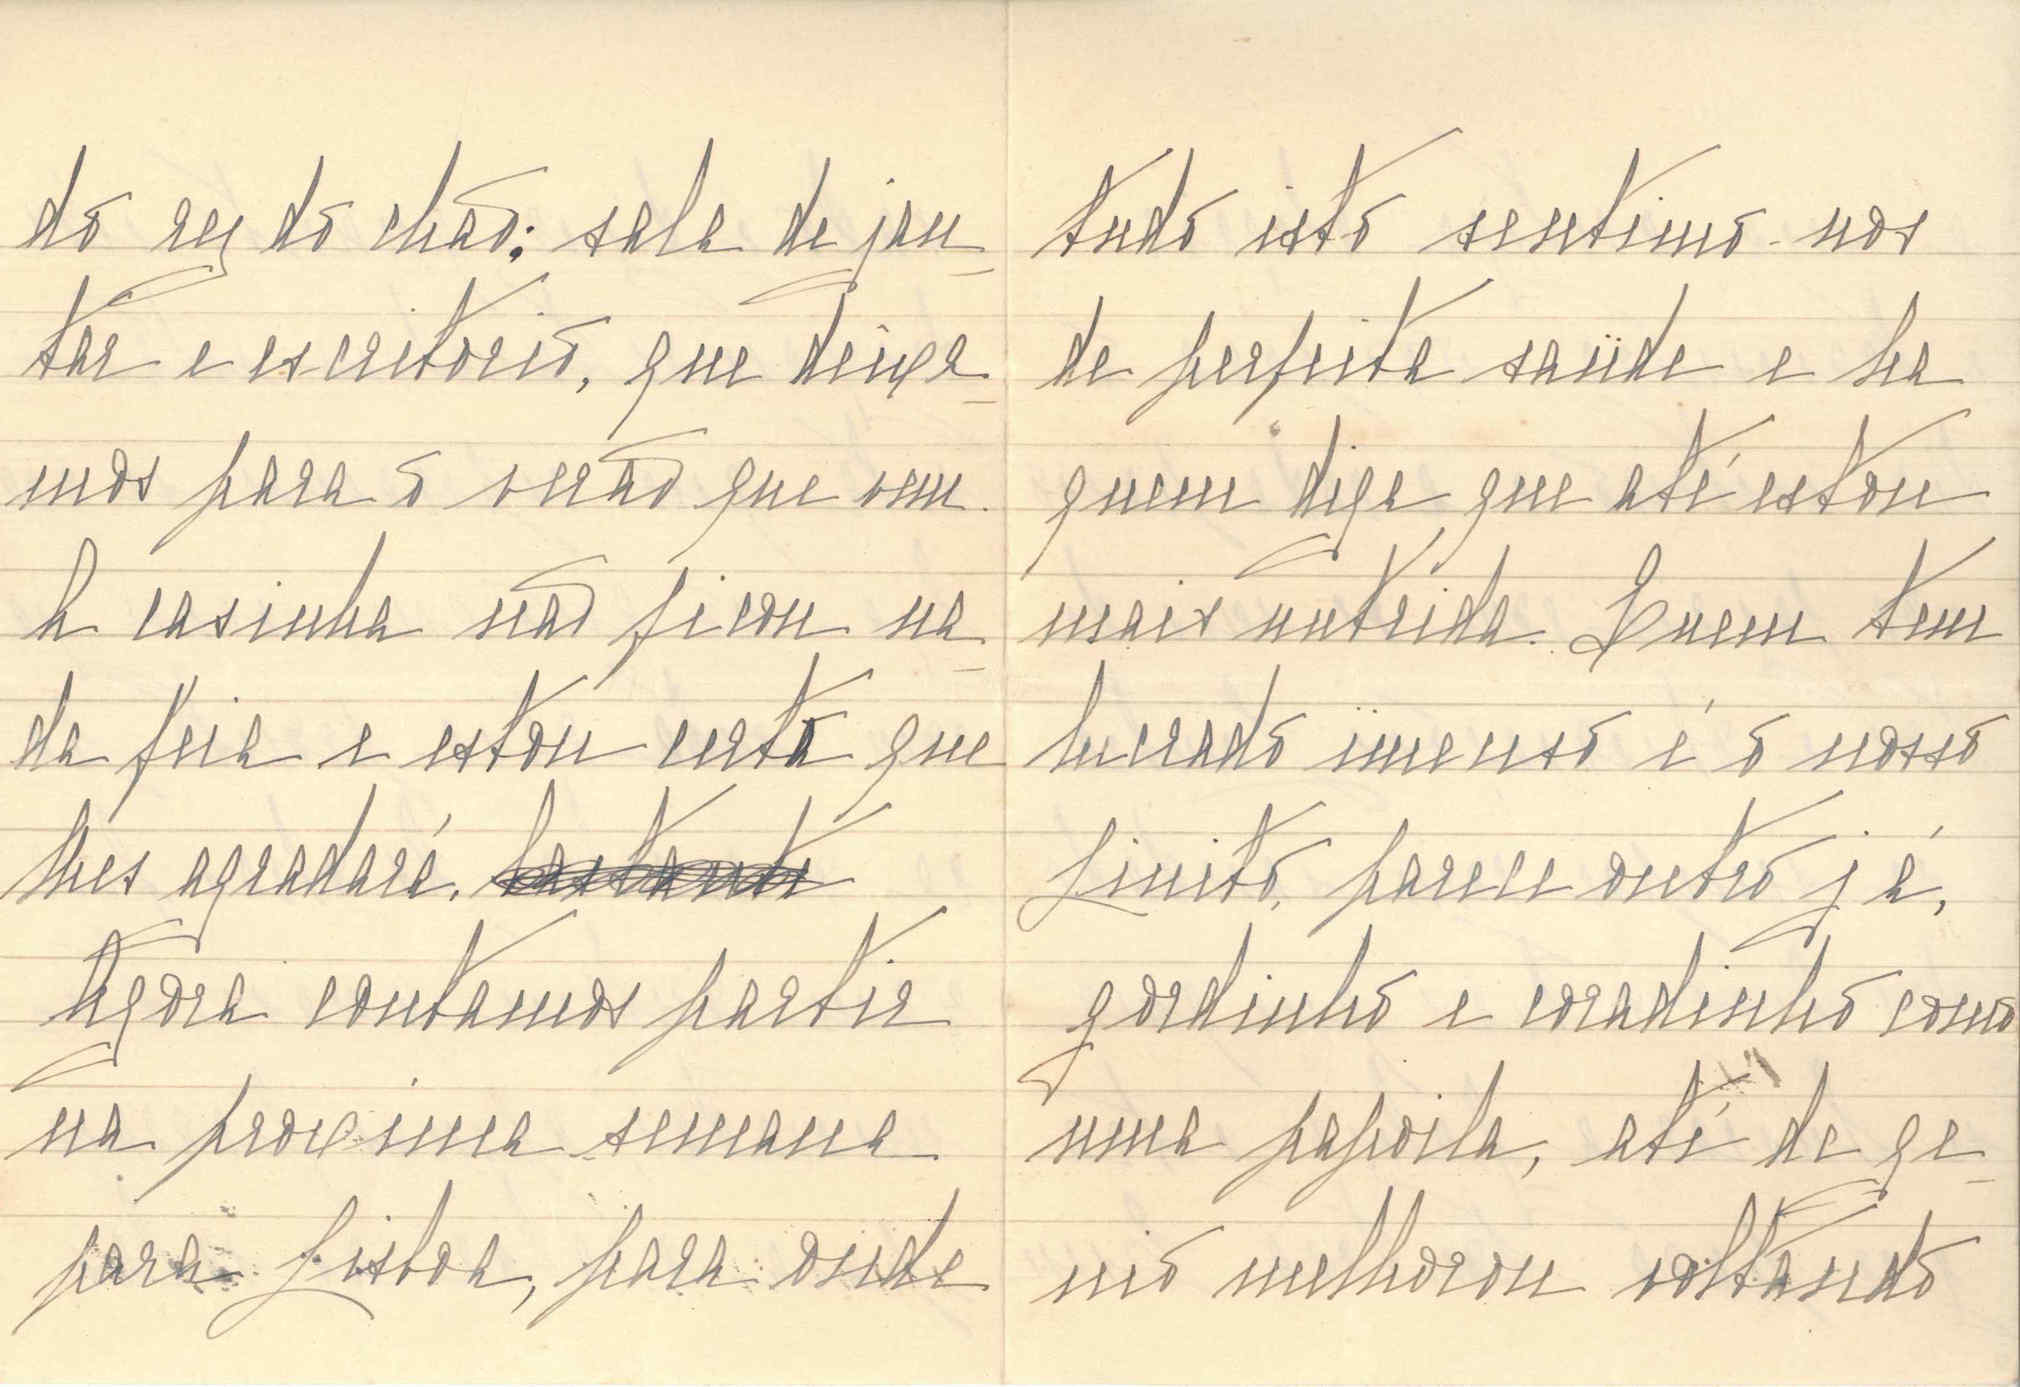 do rez do chão: sala de jan-
tar e escritorio, que deixa-
mos para o verão que vem.
A casinha não ficou na-
da feia e estou certa que
lhes agradará. bastante
Agora contamos partir
na proxima semana
para Lisboa, para onde
tudo isto sentimo-nos
de perfeita saüde e ha
quem diga que até estou
mais nutrida. Quem tem
lucrado imenso é o nosso
Linito, parece outro já,
gordinho e coradinho como
uma papoila, até de ge-
nio melhorou voltando